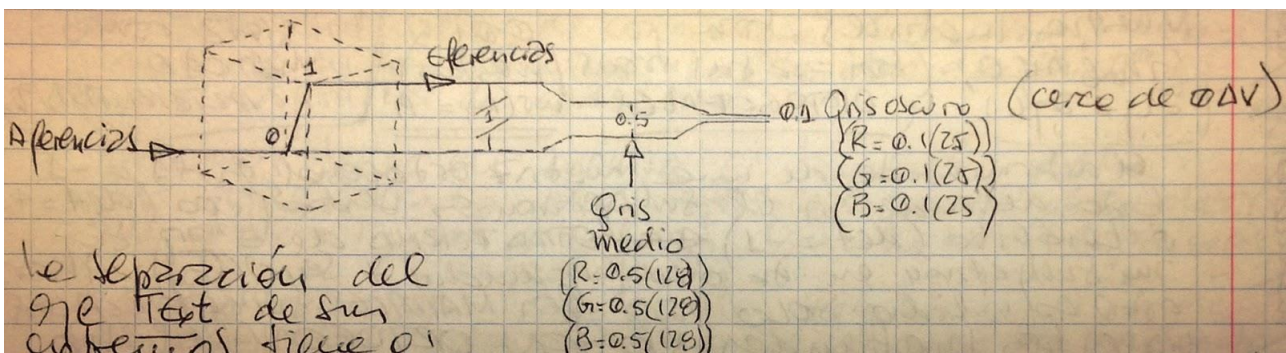 Eferencias
1
0
Aferencias
1
0.5
0.1 Gris oscuro (cerca de 0ΔV)
(R=0.1(25))
(G=0.1(25))
(B=0.1(25)
Gris
medio
(R=0.5(128))
(G=0.5(128))
(B=0.5(128))
la separación del
eje TExt de sus
extremos tiene